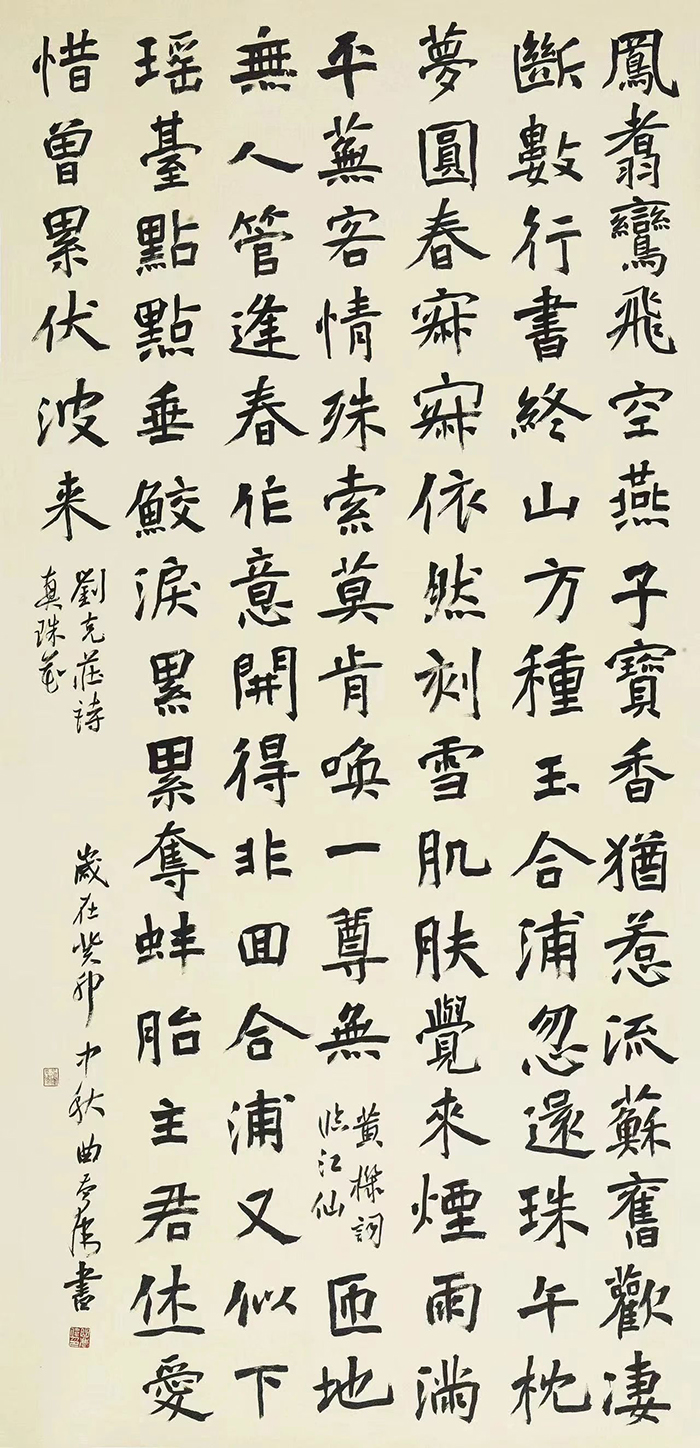 鳳翥鸞飛空燕子寶香猶惹流蘇舊歡淒
斷數行書終山方種玉合浦忽還珠午枕
夢圓春寂寂依然刻雪肌肤覺來煙雨滿
平蕪客情殊索莫肯喚一尊無
黄機詞
临江仙
匝地
無人管逢春作意開得非回合浦又似下
瑶臺點點垂鮫淚累累奪蚌胎主君休愛
惜曾累伏波来
劉克莊詩
真珠花
歲在癸卯中秋曲書